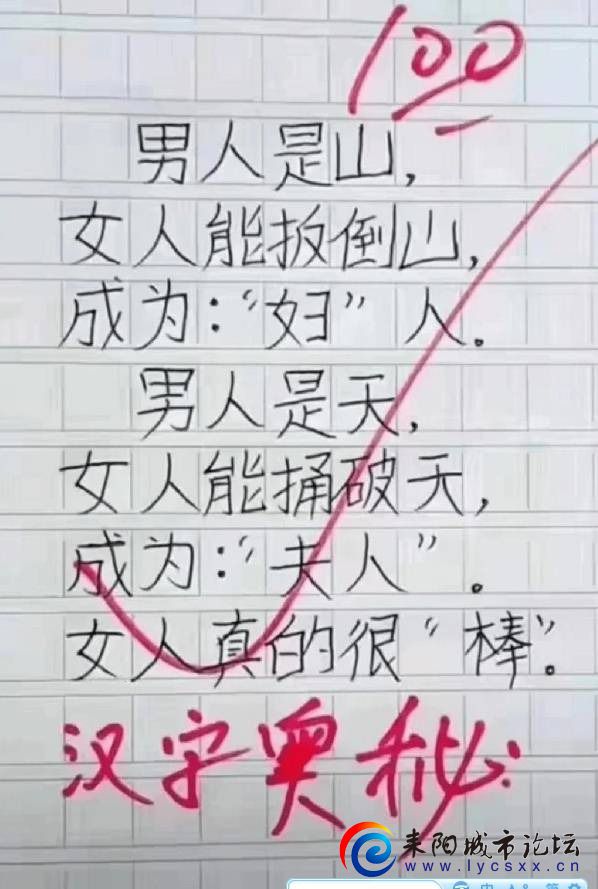 100
男人是山，
女人能扳倒山，
成为：“妇”人。
男人是天，
女人能捅破天，
成为：“夫人”。
女人真的很“棒”。
汉字奥秘
耒阳城市论坛
www.lycsxx.cn